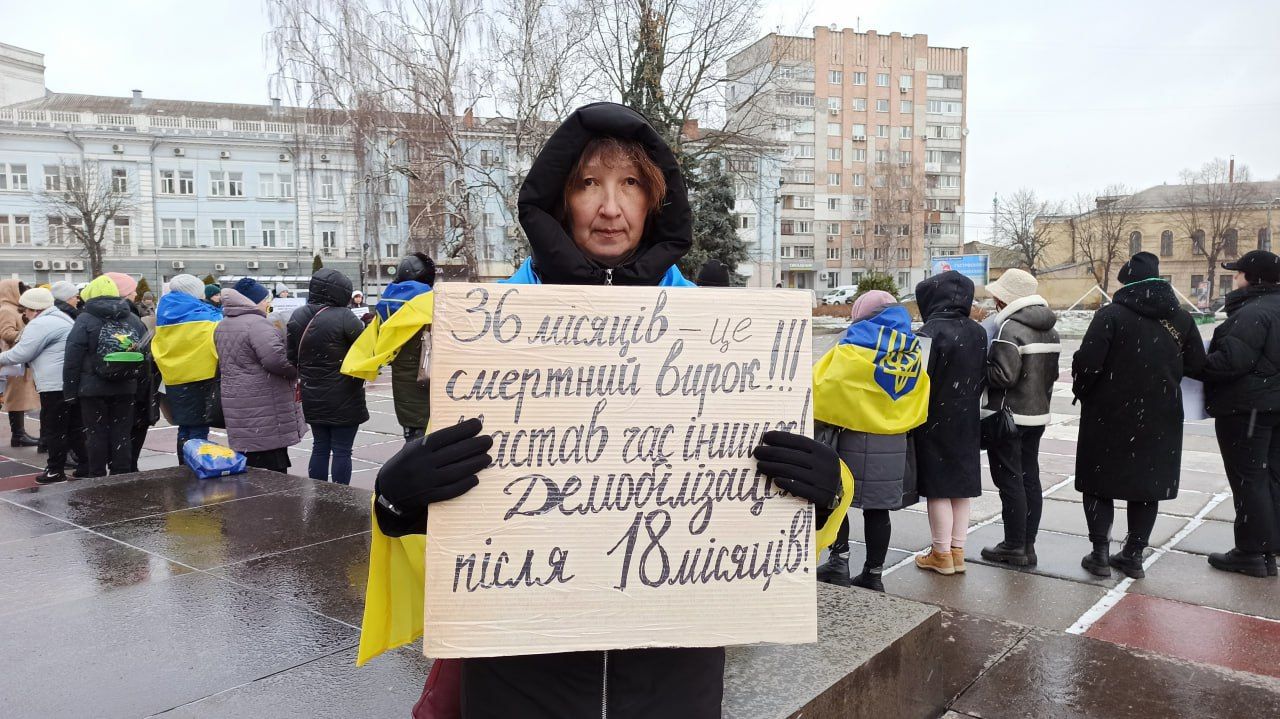 36 місяців – це
смертний вирок!!!
Настав час інших!
Демобілізація
після 18 місяців!